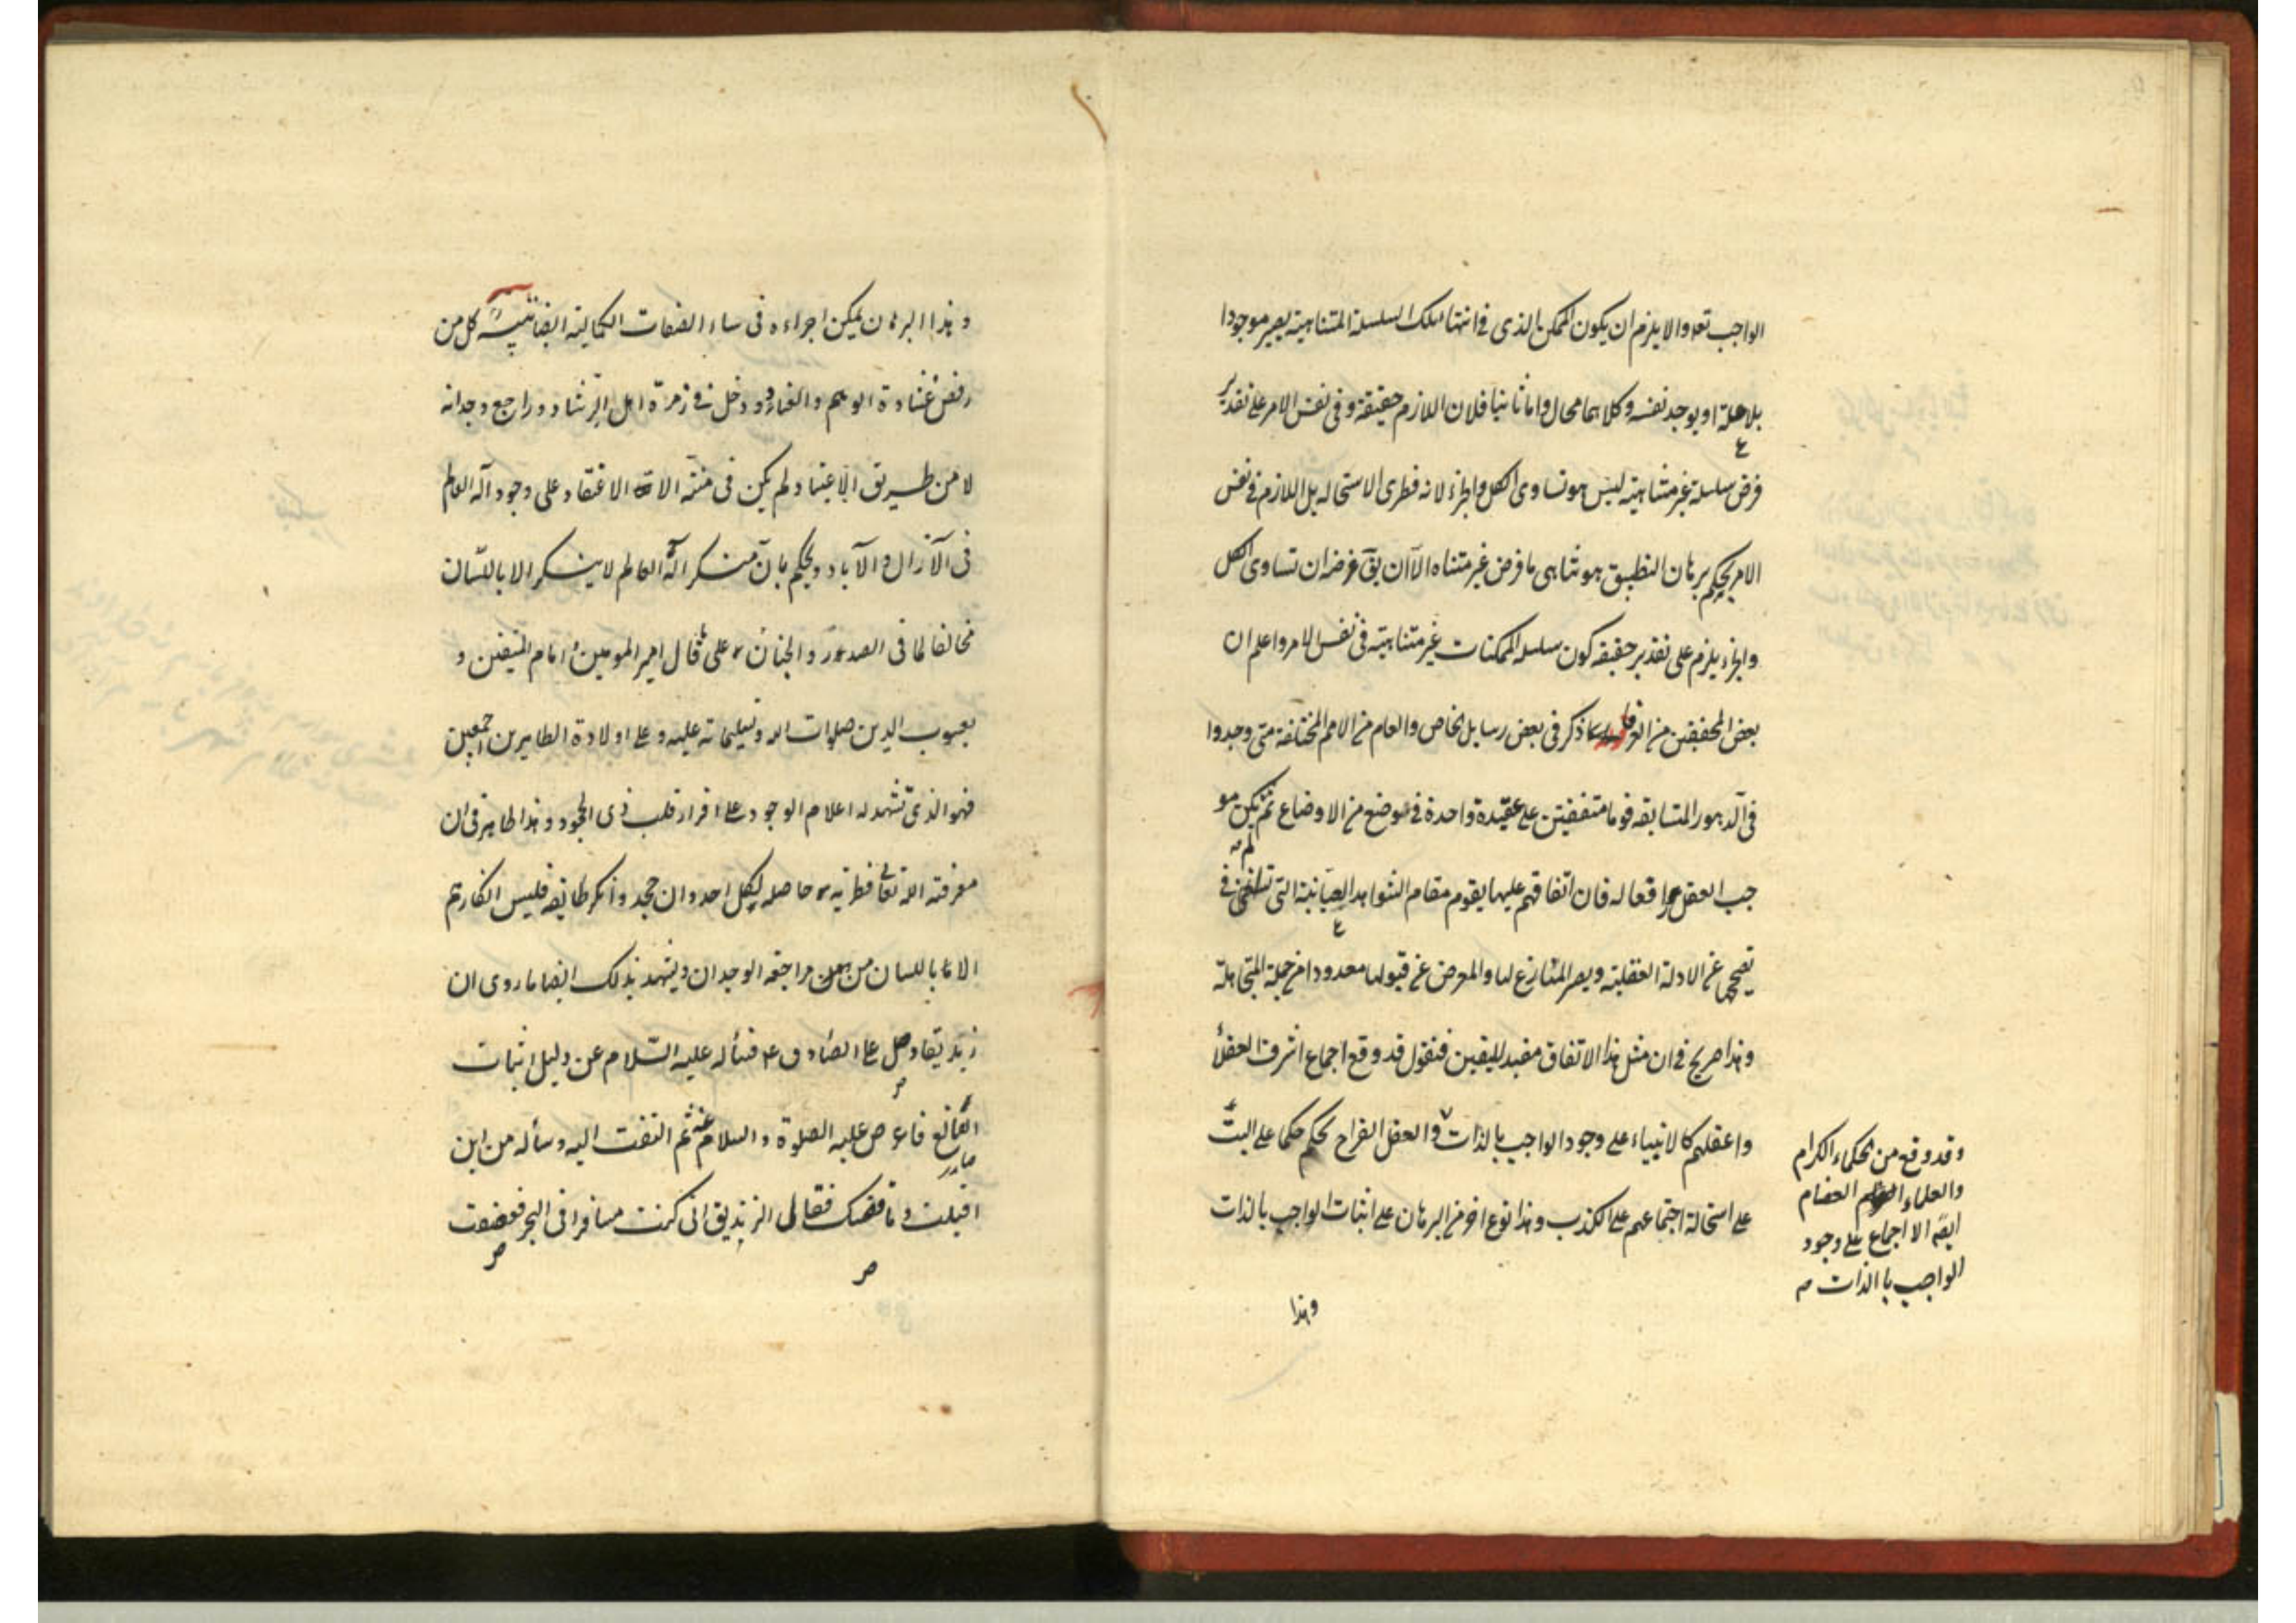 الواجب تعه والا يلزم ان يكون الممكن الذى فى انتهاء تلك السلسلة المتناهية يصير موجودا
بلا علة او يوجد نفسه وكلاهما محال واما ثانيا فلان اللازم حقيقة وفى نفس الامر على تقدير
فرض سلسلة غير متناهية ليس هو تساوى الكل والجزء لانه فطرى الاستحالة بل اللازم فى نفس
الامر بحكم برهان التطبيق هو تناهى ما فرض غير متناه الا ان يق غرضه ان تساوى الكل
والجزء يلزم على تقدير حقيقة كون سلسلة الممكنات غير متناهية فى نفس الامر واعلم ان
بعض المحققين من العرفا ذكر فى بعض رسايل الخاص والعام من الامم المختلفة متى وجدوا
فى الدهور المتسابقه قوما متفقين على عقيدة واحدة فى موضع من الاوضاع ثم لم يكن مو
جب العقل رافعا له فان اتفاقهم عليها يقوم مقام الشواهد العيانية التى تستغنى فى
تصحيحها عن الادلة العقلية ويصر المنازع لها والمعرض عن قبولها معدودا من جملة المتجاهلة
وهذا صريح فى ان مثل هذا الاتفاق مفيد لليقين فنقول قد وقع اجماع اشرف العقلاء
واعقلهم كالانبياء على وجود الواجب بالذات والعقل القراح يحكم حكما على البت
على استحالة اجتماعهم على الكذب وهذا نوع اخر من البرهان على اثبات الواجب بالذات
وقد وقع من الحكماء الكرام
والعلماء العضام
ايضه الا اجماع على وجود
الواجب باالذات صه
وهذا
وهذا البرهان يمكن اجراءه فى ساءر الصفات الكمالية ايضا تنبيه كل من
رفض غشاوة الوهم والغماء ودخل فى زمرة اهل الرشاد وراجع وجدانه
لا من طريق الاعتياد لم يكن فى منته الا الاعتقاد على وجود آله العالم
فى الآزال والآباد ويحكم بان منكر آله العالم لا ينكر الا باللسان
مخالفا لما فى الصدور والجنان على ما قال امير المومنين امام المتقين و
يعسوب الدين صلوات الله وتسليماته عليه وعلى اولادة الطاهرين اجمعين
فهو الذى تشهد له اعلام الوجود على اقرار قلب ذى الجحود وهذا ظاهر فى ان
معرفة الله تعالى فطرية حاصله لكل احد وان جحد وانكر طايفه فليس انكارهم
الا باللسان من مراجعه الوجدان ويشهد بذلك ايضا ما روى ان
زنديقا دخل على الصادق ع فسأله عليه السلام عن دليل اثبات
الصانع فاعرض عليه الصلوة والسلام عنه ثم التفت اليه وسأله من اين
اقبلت وما قصتك فقال الزنديق انى كنت مسافرا فى البحر فعصفت